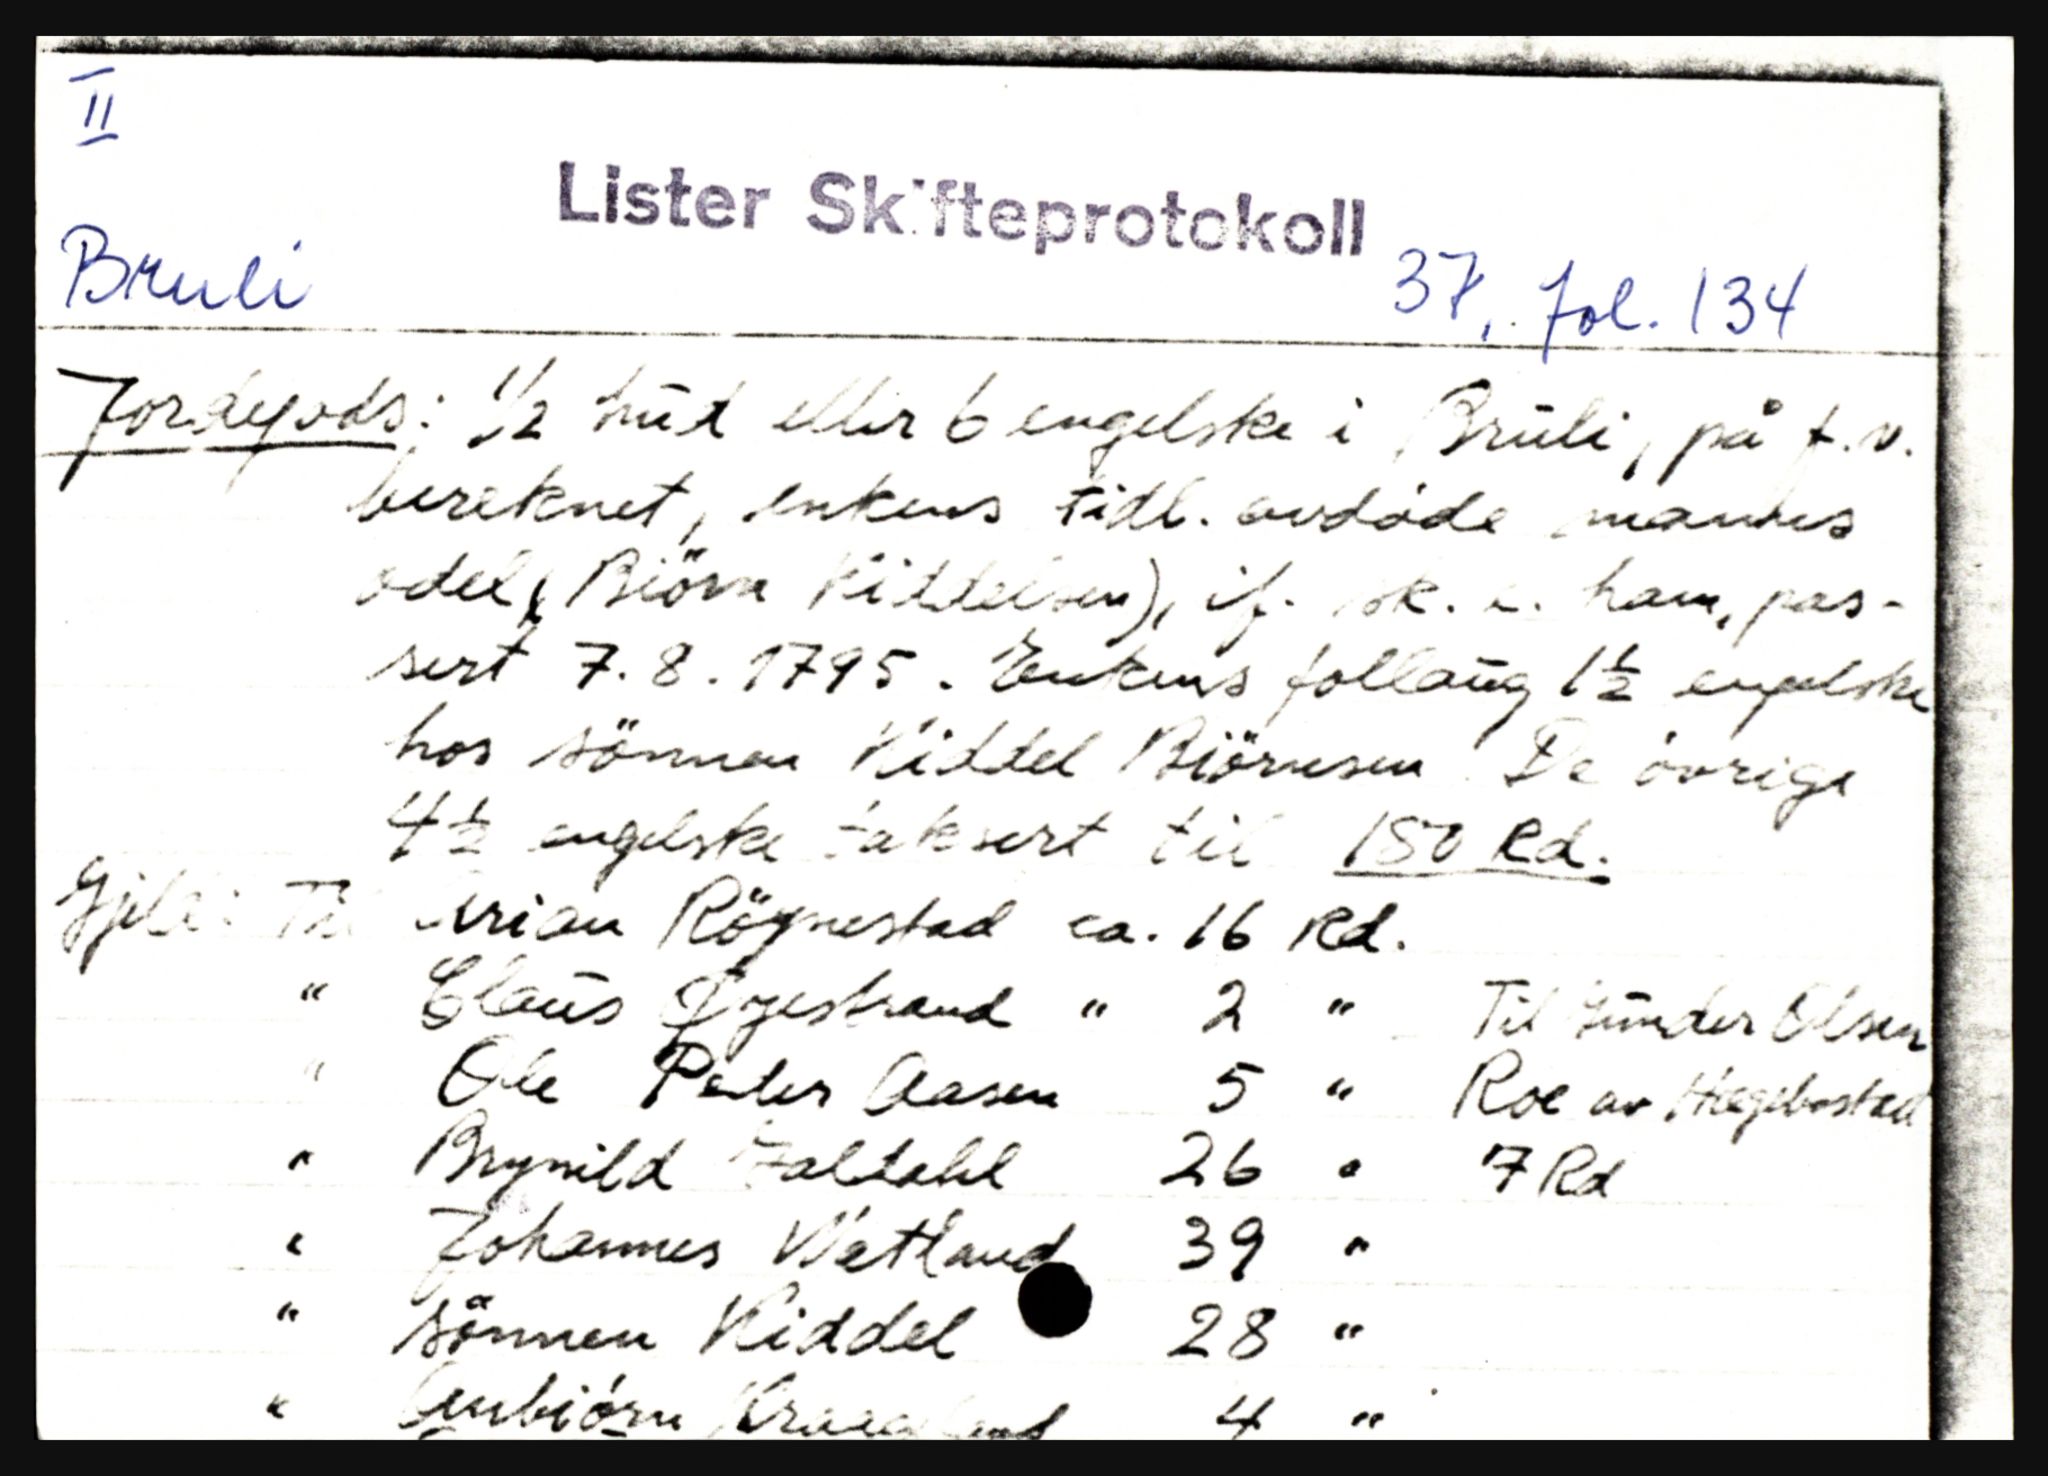 II
Lister Skifteprotokoll
Bruli
37, fol. 134
Jordegods: 1/2 hud eller 6 engelske i Bruli, på f.v.
bereknet, enkens tidl. avdøde mannes
odel (Biörn Kiddelsen), if. sk. e. ham, pas-
sert 7.8.1795. Enkens follaug 1½ engelske
hos sönnen Kiddel Biörnsen. De övrige
4½ engelske taksert til 150 Rd.
Gjeld: Til Arian Röynestad ca. 16 Rd.
" Claus Öyestrand " 2 " Til Gunder Olsen
" Ole Peder Aasen 5 " Roe av Hegebostad
" Brynild 26 " 7 Rd
" Johannes Wetland 39 "
" sönnen Kiddel 28 "
" 4 "